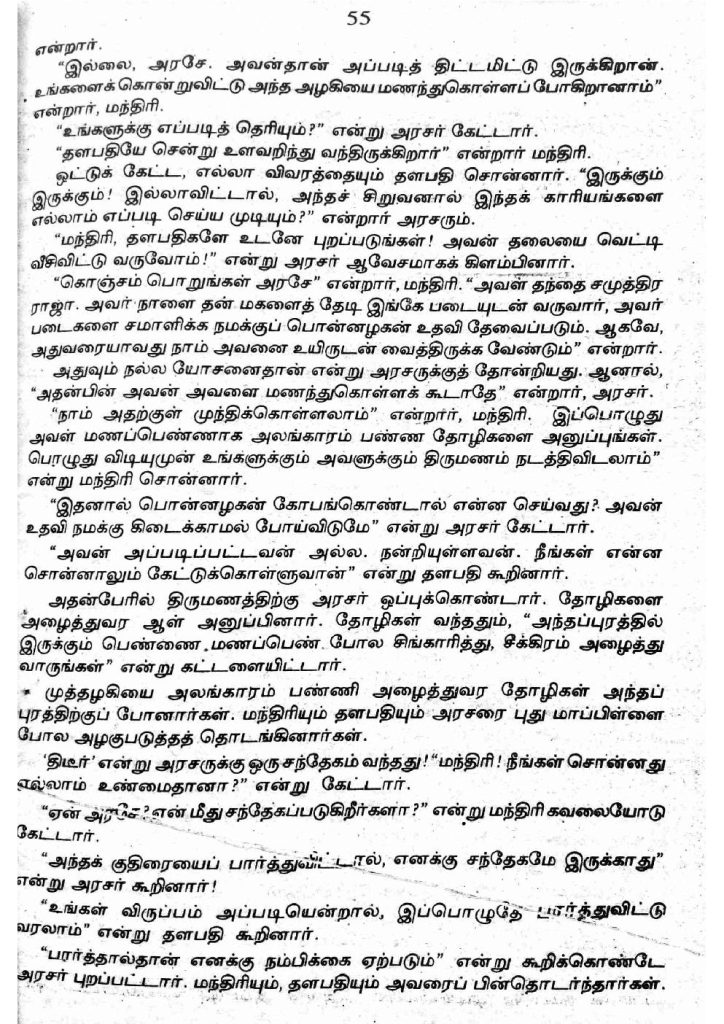 55
என்றார்.
“இல்லை, அரசே. அவன்தான் அப்படித் திட்டமிட்டு இருக்கிறான்.
உங்களைக் கொன்றுவிட்டு அந்த அழகியை மணந்துகொள்ளப் போகிறானாம்”
என்றார், மந்திரி.
“உங்களுக்கு எப்படித் தெரியும்?” என்று அரசர் கேட்டார்.
“தளபதியே சென்று உளவறிந்து வந்திருக்கிறார்” என்றார் மந்திரி.
ஒட்டுக் கேட்ட, எல்லா விவரத்தையும் தளபதி சொன்னார். “இருக்கும்
இருக்கும்! இல்லாவிட்டால், அந்தச் சிறுவனால் இந்தக் காரியங்களை
எல்லாம் எப்படி செய்ய முடியும்?” என்றார் அரசரும்.
“மந்திரி, தளபதிகளே உடனே புறப்படுங்கள்! அவன் தலையை வெட்டி
வீசிவிட்டு வருவோம்!” என்று அரசர் ஆவேசமாகக் கிளம்பினார்.
“கொஞ்சம் பொறுங்கள் அரசே” என்றார், மந்திரி. “அவள் தந்தை சமுத்திர
ராஜா. அவர் நாளை தன் மகளைத் தேடி இங்கே படையுடன் வருவார், அவர்
படைகளை சமாளிக்க நமக்குப் பொன்னழகன் உதவி தேவைப்படும். ஆகவே,
அதுவரையாவது நாம் அவனை உயிருடன் வைத்திருக்க வேண்டும்” என்றார்.
அதுவும் நல்ல யோசனைதான் என்று அரசருக்குத் தோன்றியது. ஆனால்,
“அதன்பின் அவன் அவளை மணந்துகொள்ளக் கூடாதே” என்றார், அரசர்.
“நாம் அதற்குள் முந்திக்கொள்ளலாம்” என்றார், மந்திரி. இப்பொழுது
அவள் மணப்பெண்ணாக அலங்காரம் பண்ண தோழிகளை அனுப்புங்கள்.
பொழுது விடியுமுன் உங்களுக்கும் அவளுக்கும் திருமணம் நடத்திவிடலாம்”
என்று மந்திரி சொன்னார்.
“இதனால் பொன்னழகன் கோபங்கொண்டால் என்ன செய்வது? அவன்
உதவி நமக்கு கிடைக்காமல் போய்விடுமே” என்று அரசர் கேட்டார்.
“அவன் அப்படிப்பட்டவன் அல்ல. நன்றியுள்ளவன். நீங்கள் என்ன
சொன்னாலும் கேட்டுக்கொள்ளுவான்” என்று தளபதி கூறினார்.
அதன்பேரில் திருமணத்திற்கு அரசர் ஒப்புக்கொண்டார். தோழிகளை
அழைத்துவர ஆள் அனுப்பினார். தோழிகள் வந்ததும், “அந்தப்புரத்தில்
இருக்கும் பெண்ணை மணப்பெண் போல சிங்காரித்து, சீக்கிரம் அழைத்து
வாருங்கள்” என்று கட்டளையிட்டார்.
முத்தழகியை அலங்காரம் பண்ணி அழைத்துவர தோழிகள் அந்தப்
புரத்திற்குப் போனார்கள். மந்திரியும் தளபதியும் அரசரை புது மாப்பிள்ளை
போல அழகுபடுத்தத் தொடங்கினார்கள்.
‘திடீர்’ என்று அரசருக்கு ஒரு சந்தேகம் வந்தது! “மந்திரி! நீங்கள் சொன்னது
எல்லாம் உண்மைதானா?” என்று கேட்டார்.
“ஏன் அரசே? என் மீது சந்தேகப்படுகிறீர்களா?” என்று மந்திரி கவலையோடு
கேட்டார்.
“அந்தக் குதிரையைப் பார்த்துவிட்டால், எனக்கு சந்தேகமே இருக்காது”
என்று அரசர் கூறினார்!
“உங்கள் விருப்பம் அப்படியென்றால், இப்பொழுதே பார்த்துவிட்டு
வரலாம்” என்று தளபதி கூறினார்.
“பரர்த்தால்தான் எனக்கு நம்பிக்கை ஏற்படும்” என்று கூறிக்கொண்டே
அரசர் புறப்பட்டார். மந்திரியும், தளபதியும் அவரைப் பின்தொடர்ந்தார்கள்.